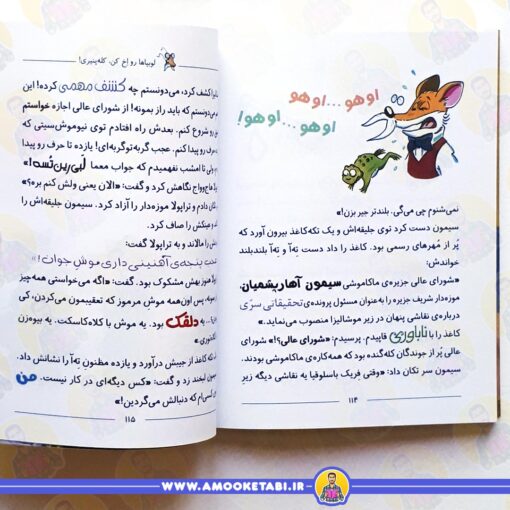 اوهو...اوهو
اوهو...اوهو!
نمی‌شنوم چی می‌گی. بلندتر جیر بزن!»
سیمون دست کرد توی جلیقه‌اش و یک تکه‌کاغذ بیرون آورد که
پُر از مُهرهای رسمی بود. کاغذ را داد دست تِه‌آ و تِه‌آ بلندبلند
خواندش:
«شورای عالی جزیره‌ی ماکاموشی سیمون آهارپشمیان،
موزه‌دار شریف جزیره را به‌عنوان مسئول پرونده‌ی تحقیقاتی سرّی
درباره‌ی نقاشی پنهان در زیر موشالیزا منصوب می‌نماید.»
کاغذ را با ناباوری قاپیدم. پرسیدم: «شورای عالی؟!» شورای
عالی پُر از جوندگان کله‌گنده بود که همه‌کاره‌ی ماکاموشی بودند.
سیمون سر تکان داد: «وقتی فِریک باسلوفیا یه نقاشی دیگه زیرِ
۱۱۴
لوبیاها رو اخ کن، کله‌پنیری!
کشف کرد، می‌دونستم چه کشف مهمی کرده! این
می‌دونستم که باید راز بمونه! از شورای عالی اجازه خواستم
رو شروع کنم. بعدش راه افتادم توی نیوموش‌سیتی که
حرف رو پیدا کنم. عجب گربه‌توگربه‌ای! یازده تا حرف رو پیدا
تا امشب نفهمیدم که جواب معما لَبی‌رین‌تُسه!»
هاج‌وواج نگاهش کرد و گفت: «الان یعنی ولش کنم بره؟»
تکان دادم و تراپولا موزه‌دار را آزاد کرد. سیمون جلیقه‌اش را
عینکش را صاف کرد.
را مالاند و به تراپولا گفت:
پنجه‌ی آهنینی داری موشِ جوان!»
بهش مشکوک بود. گفت: «اگه می‌خواستی همه‌چیز
بمونه، پس اون‌همه موشِ مرموز که تعقیبمون می‌کردن، کی
یه دلقک بود. یه موش با کلاه‌کاسکت. یه بیوه‌زن
که کاغذ از جیبش درآورد و یازده مظنونِ تِه‌آ را نشانش داد.
لبخند زد و گفت: «کس دیگه‌ای در کار نیست. من
کسی‌ام که دنبالش می‌گردین!»
۱۱۵
WWW.AMOOKETABI.IR